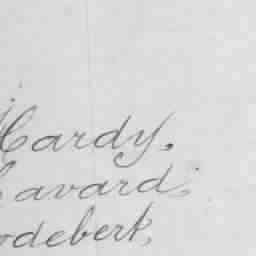 Hardy,
avard,
odebert,